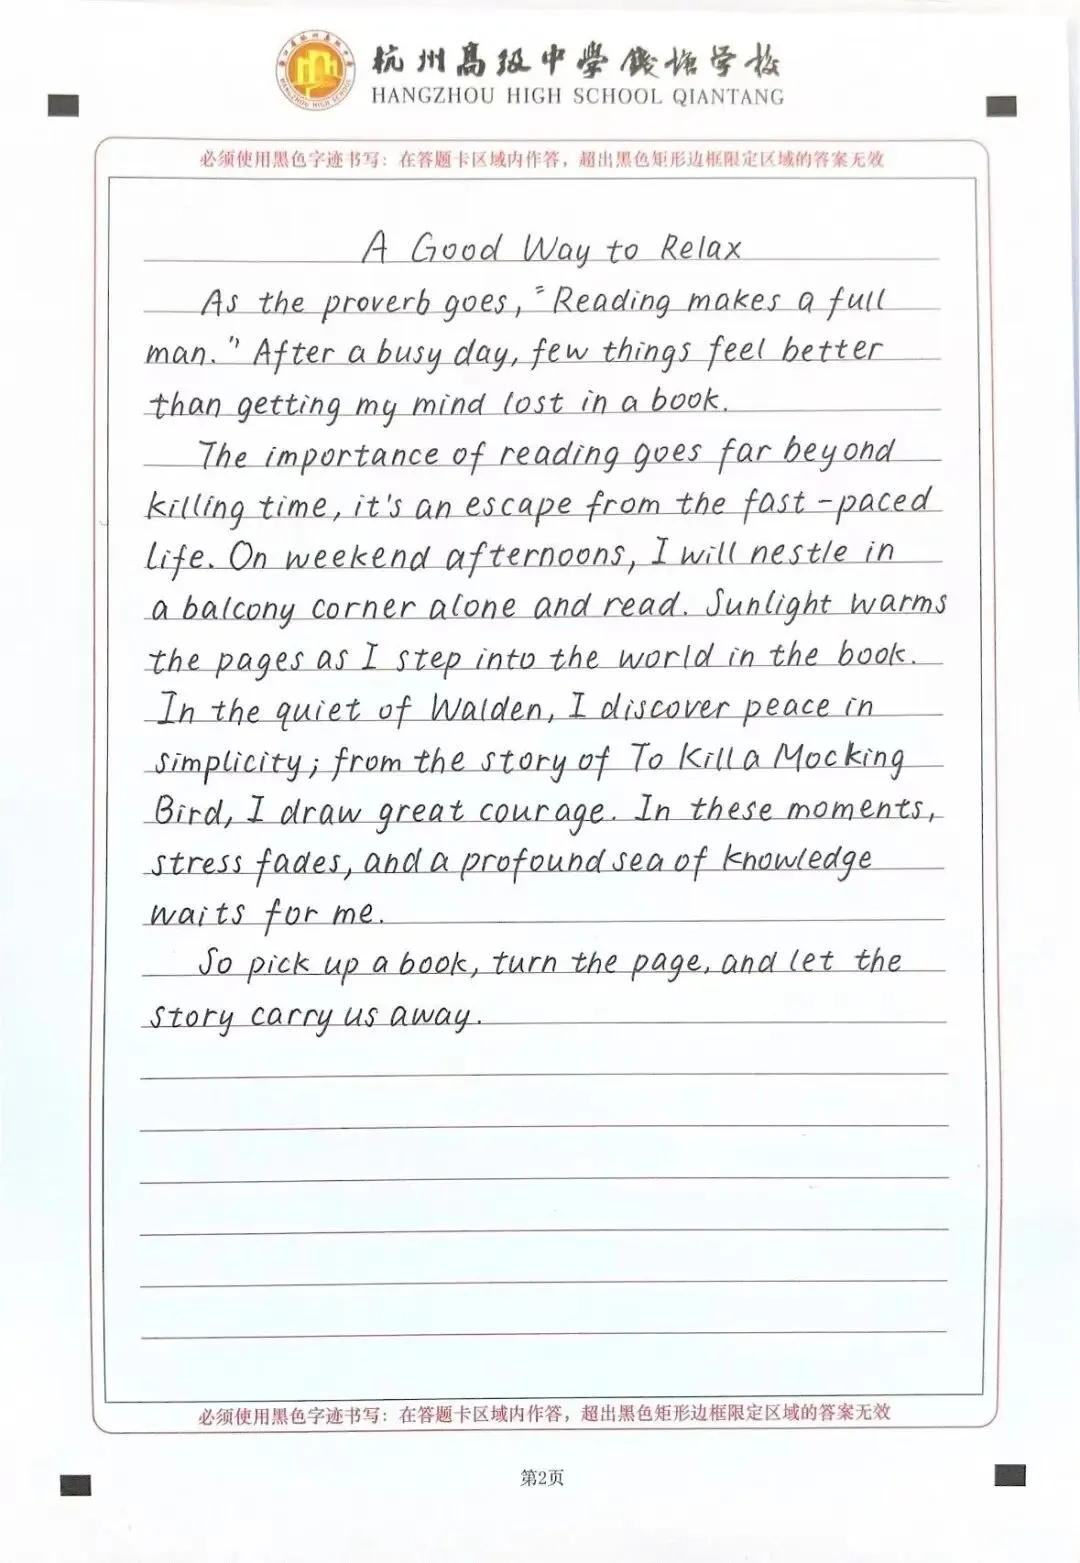 杭州高级中学钱塘学校
HANGZHOU HIGH SCHOOL QIANTANG
必须使用黑色字迹书写：在答题卡区域内作答，超出黑色矩形边框限定区域的答案无效
A Good Way to Relax
As the proverb goes, "Reading makes a full
man." After a busy day, few things feel better
than getting my mind lost in a book.
The importance of reading goes far beyond
killing time, it's an escape from the fast-paced
life. On weekend afternoons, I will nestle in
a balcony corner alone and read. Sunlight warms
the pages as I step into the world in the book.
In the quiet of Walden, I discover peace in
simplicity; from the story of To Kill a Mocking
Bird, I draw great courage. In these moments,
stress fades, and a profound sea of knowledge
waits for me.
So pick up a book, turn the page, and let the
story carry us away.
必须使用黑色字迹书写：在答题卡区域内作答，超出黑色矩形边框限定区域的答案无效
第2页